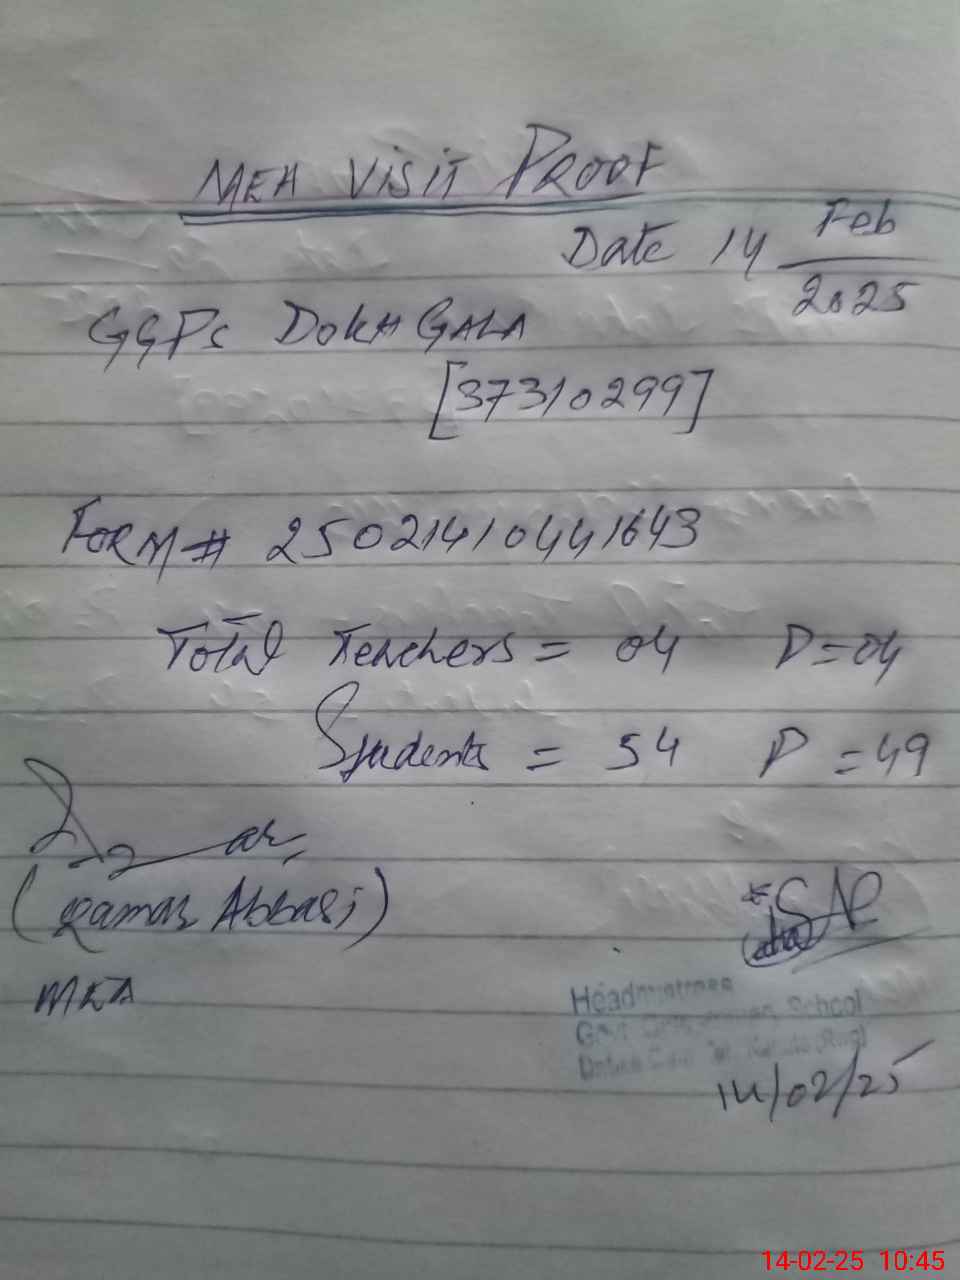 MEA VISIT PROOF
Date 14 Feb
2025
GGPS DOKH GALA
[37310299]
FORM # 250214104441643
Total Teachers = 04 P=04
Students = 54 P=49
(Qamar Abbasi)
MEA
Headmistress
Govt School
14/02/25
14-02-25 10:45